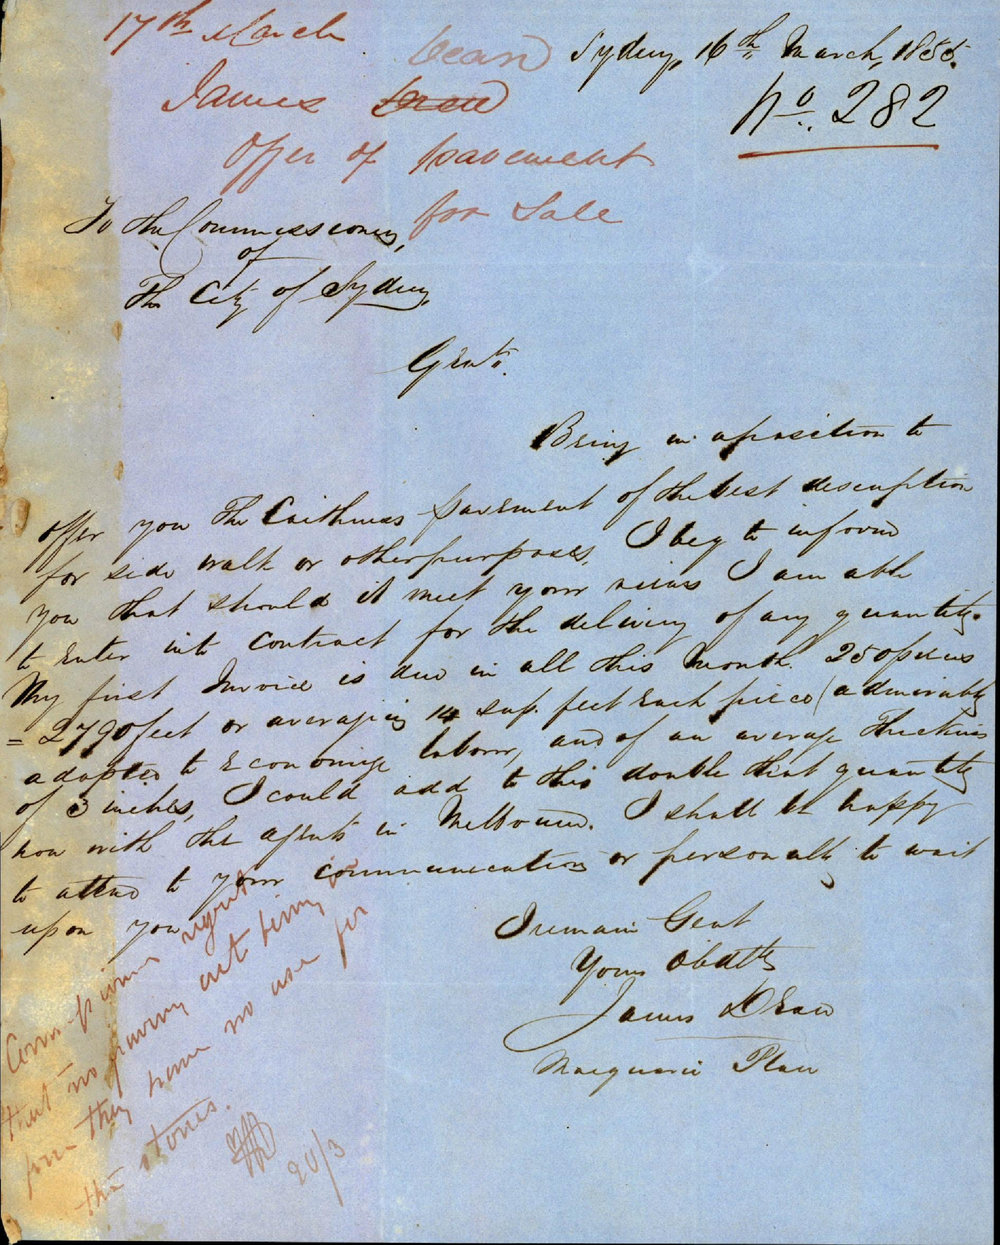 17th March
Sydney, 16th March, 1855.
Dean
James Dean
No. 282
Offer of pavement
for Sale
To the Commissioners,
of
The City of Sydney,
Gents.
Being in a position to
offer you the Caithness pavement of the best description
for side walk or other purposes, I beg to inform
you that should it meet your views I am able
to Enter into contract for the delivery of any quantity.
My first Invoice is due in all this Month. 250 pieces
= 2790 feet or averaging 14 sup. feet Each piece (admirably
adapted to Economise labour, and of an average Thickness
of 3 inches, I could add to this double that quantity
now with the agents in Melbourne. I shall be happy
to attend to your communication or personally to wait
upon you
I remain Gent
Yours Obdtly
James Dean
Macquarie Place
Commissioners regret
that no paving is
being for
they have no use for
the stones.
20/3